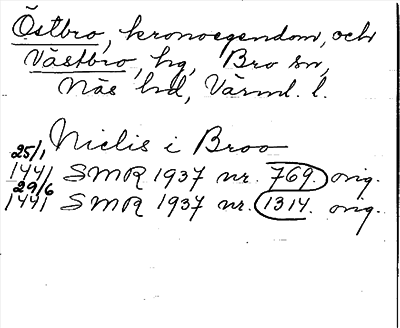 Östbro, kronoegendom, och
Västbro, hg, Bro sn,
Näs hd, Värml. l.
Niclis i Broo
25/1 1441 SMR 1937 nr. 769. orig.
29/6 1441 SMR 1937 nr. 1314. orig.